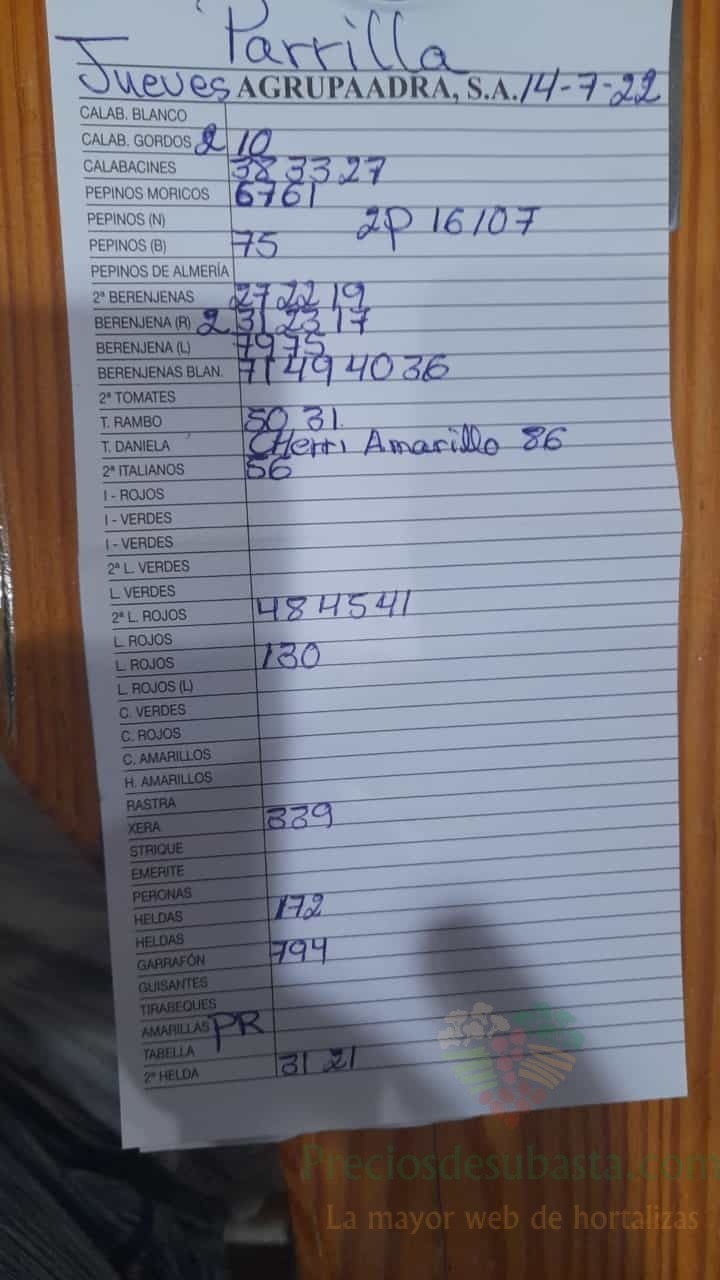 Parrilla
Jueves AGRUPAADRA, S.A. 14-7-22
CALAB. BLANCO
CALAB. GORDOS 2 10
CALABACINES 38 33 27
PEPINOS MORICOS 67 61
PEPINOS (N) 2P 16/07
PEPINOS (B) 75
PEPINOS DE ALMERÍA
2ª BERENJENAS 27 22 19
BERENJENA (R) 2 31 23 17
BERENJENA (L) 79 75
BERENJENAS BLAN. 71 49 40 36
2ª TOMATES
T. RAMBO 50 31
T. DANIELA CHerri Amarillo 86
2ª ITALIANOS 56
I - ROJOS
I - VERDES
I - VERDES
2ª L. VERDES
L. VERDES
2ª L. ROJOS 48 45 41
L. ROJOS
L. ROJOS 130
L. ROJOS (L)
C. VERDES
C. ROJOS
C. AMARILLOS
H. AMARILLOS
RASTRA
XERA 339
STRIQUE
EMERITE
PERONAS
HELDAS 172
HELDAS
GARRAFÓN 794
GUISANTES
TIRABEQUES
AMARILLAS PR
TABELLA
2ª HELDA 31 21
Preciosdesubasta.com
La mayor web de hortalizas